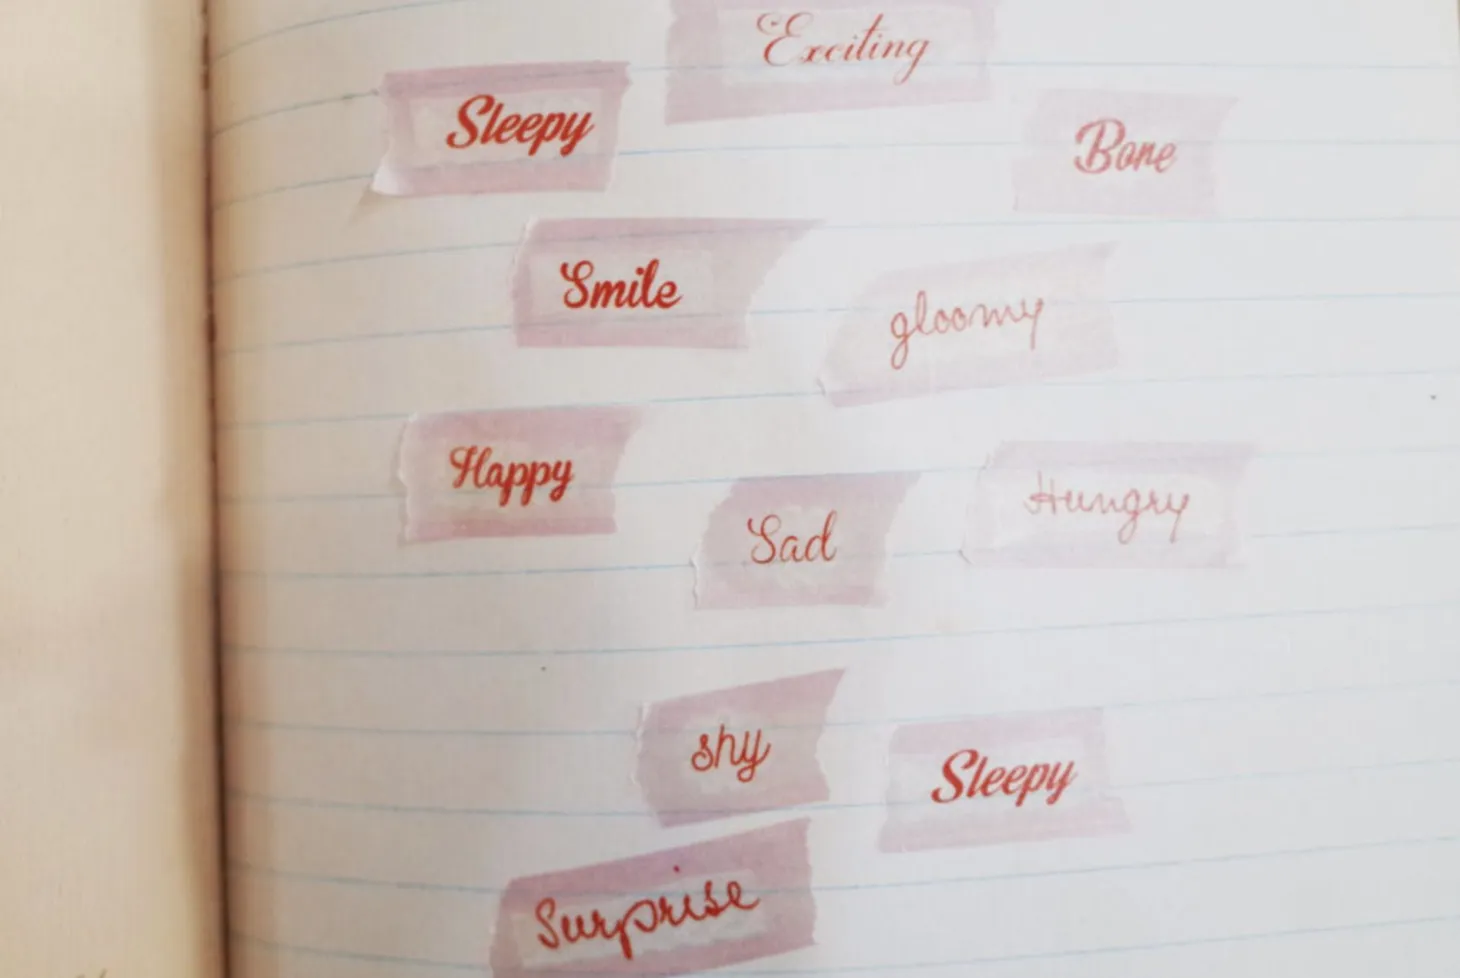 Exciting
Sleepy
Bone
Smile
gloomy
Happy
Sad
Hungry
shy
Sleepy
Surprise